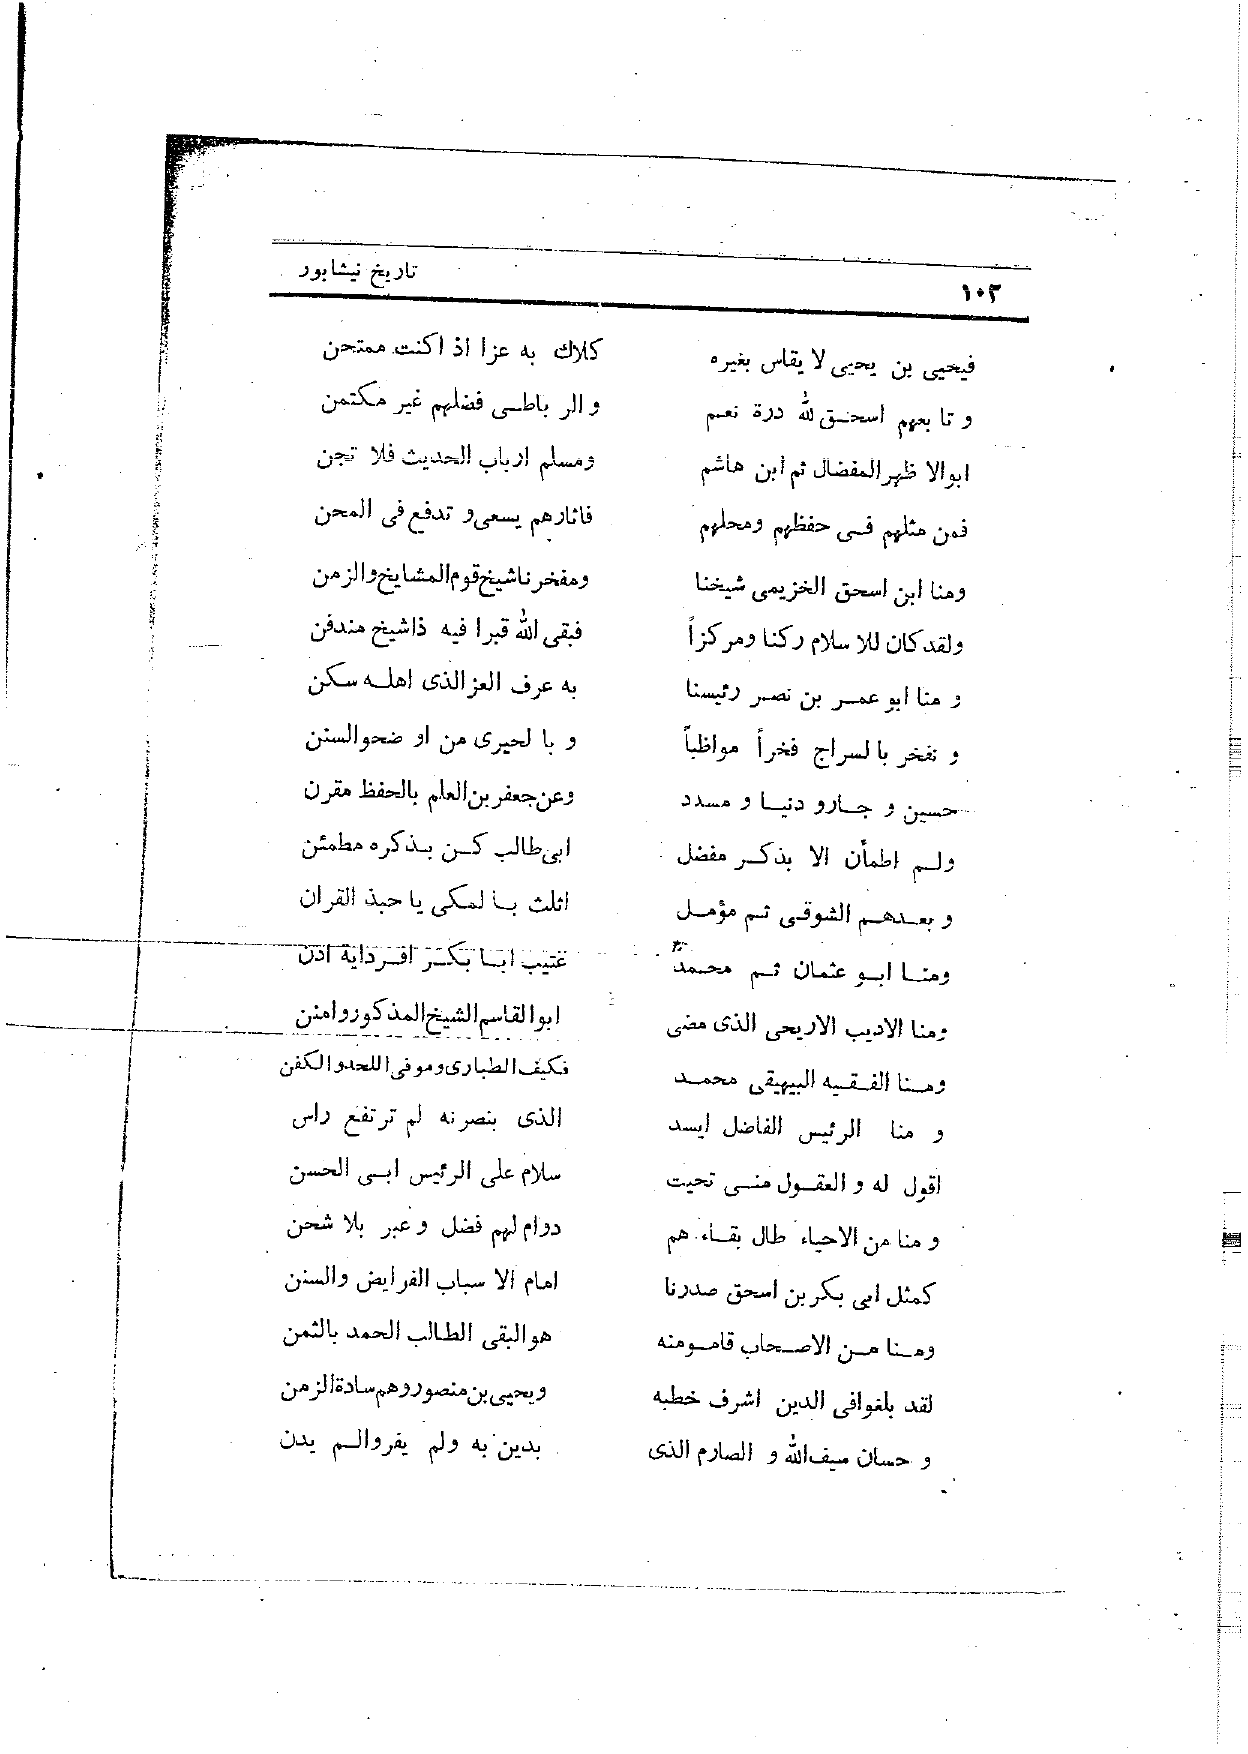 ۱۰۲ تاریخ نیشابور
فیحیی بن یحیی لا یقاس بغیره کلاك به عزا اذ اکنت ممتحن
و تا بعهم اسحـق لله درة نعم و الر باطـی فضلهم غیر مکتمن
ابوالا ظهرالمفضال ثم ابن هاشم ومسلم ارباب الحدیث فلا تجن
فمن مثلهم فـی حفظهم ومحلهم فاثارهم یسعی و تدفع فی المحن
ومنا ابن اسحق الخزیمی شیخنا ومفخر ناشیخ قوم المشایخ والزمن
ولقدکان للا سلام رکنا ومرکزاً فبقی الله قبرا فیه ذاشیخ مندفن
و منا ابو عمـر بن نصر رئیسنا به عرف العزالذی اهلـه سکن
و نفخر با لسراج فخراً مواظباً و با لحیری من او ضحوالسنن
حسین و جـارو دنیـا و مسدد وعن جعفر بن العلم بالحفظ مقرن
ولـم اطمأن الا بذکـر مفضل ابی طالب کـن بـذکره مطمئن
و بعـدهـم الشوقـی ثـم مؤمـل اثلث بـا لمکی یا حبذ القران
ومنـا ابـو عثمان ثـم محمـد عتیب ابـا بکـر افـردایة اذن
ومنا الادیب الاریحی الذی مضی ابوالقاسم الشیخ المذکور وامتن
ومـنا الفـقـیه البیهقی محمـد فکیف الطباری وموفی اللحدوالکفن
و منا الرئیس الفاضل ایسد الذی بنصرته لم ترتفع راس
اقول له و العقـول منـی تحیت سلام علی الرئیس ابـی الحسن
و منا من الاحیاء طال بقـاء هم دوام لهم فضل و عبر بلا شحن
کمثل ابی بکر بن اسحق صدرنا امام الا سباب الفرایض والسنن
ومـنا مـن الاصـحاب قامـومنه هوالبقی الطالب الحمد بالثمن
لقد بلغوافی الدین اشرف خطبه ویحیی بن منصور وهم سادة الزمن
و حسان سیف الله و الصارم الذی بدین به ولم یفروالـم یدن